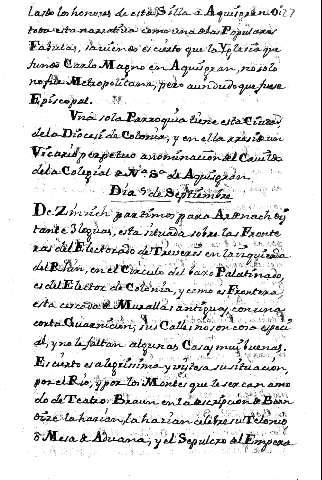 lado los honores de esta Silla a Aquisgran. Oi
toda esta narrativa como una de las Populares
Fabulas, saviendo es cierto que la Yglesia que
fundó Carlo Magno en Aquisgran, no solo
no fue Metropolitana, pero aun dudo que fuese
Episcopal.
Una sola Parroquia tiene esta Ciudad
de la Diocesi de Colonia, y en ella reside un
Vicario perpetuo a nominacion del Cavildo
de la Colegial de Na Sa de Aquisgran.
Dia 9 de Septiembre
De Zinrich partimos para Andernach dis
tante 3 leguas, esta situada sobre las Fronte
ras del Electorado de Treveris en la izquierda
del Rhin, en el Circulo del baxo Palatinado,
es del Elector de Colonia, y como es Frontera
esta cercada de Murallas antiguas, con una
corta Guarnicion; sus Calles no son cosa especi
al, y no le faltan algunas Casas muy buenas.
Es cierto es alegrissima y vistosa su situacion,
por el Rio, y por los Montes que le sercan a mo
do de Teatro. Braun en la descripcion de
dize la hacian celebre su Telonio,
o Mesa de Aduana, y el Sepulcro del Empera